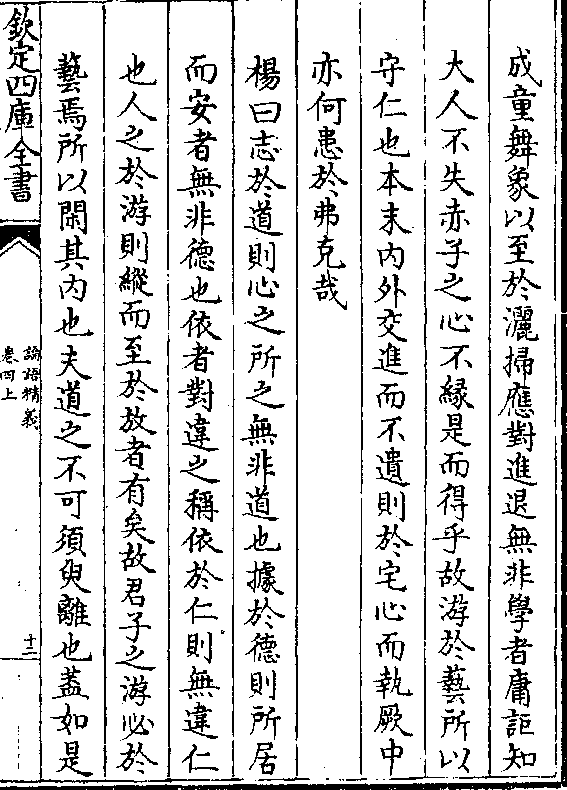 成童舞象以至於灑掃應對進退無非學者庸詎知
大人不失赤子之心不縁是而得乎故游於藝所以
守仁也本末内外交進而不遺則於宅心而執厥中
亦何患於弗克哉
楊曰志於道則心之所之無非道也據於德則所居
而安者無非德也依者對違之稱依於仁則無違仁
也人之於游則縱而至於放者有矣故君子之游必於
藝焉所以閑其内也夫道之不可須臾離也蓋如是
欽定四庫全書
論語精義
卷四上
十二